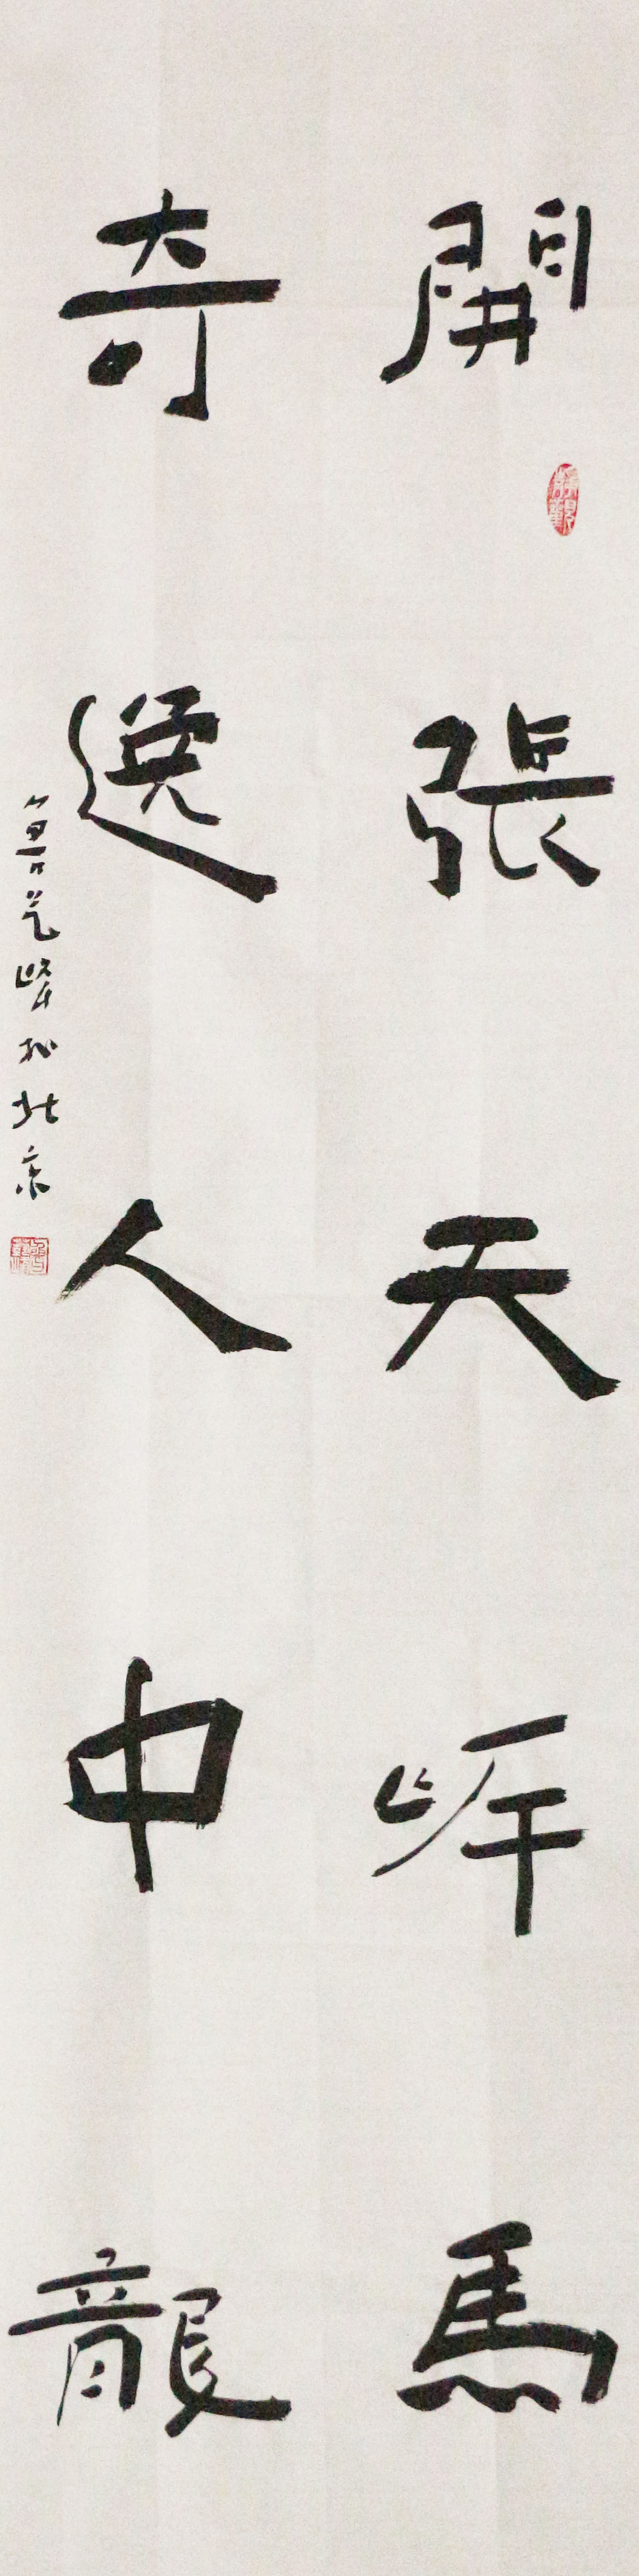 開張天岸馬
奇逸人中龍
於北京